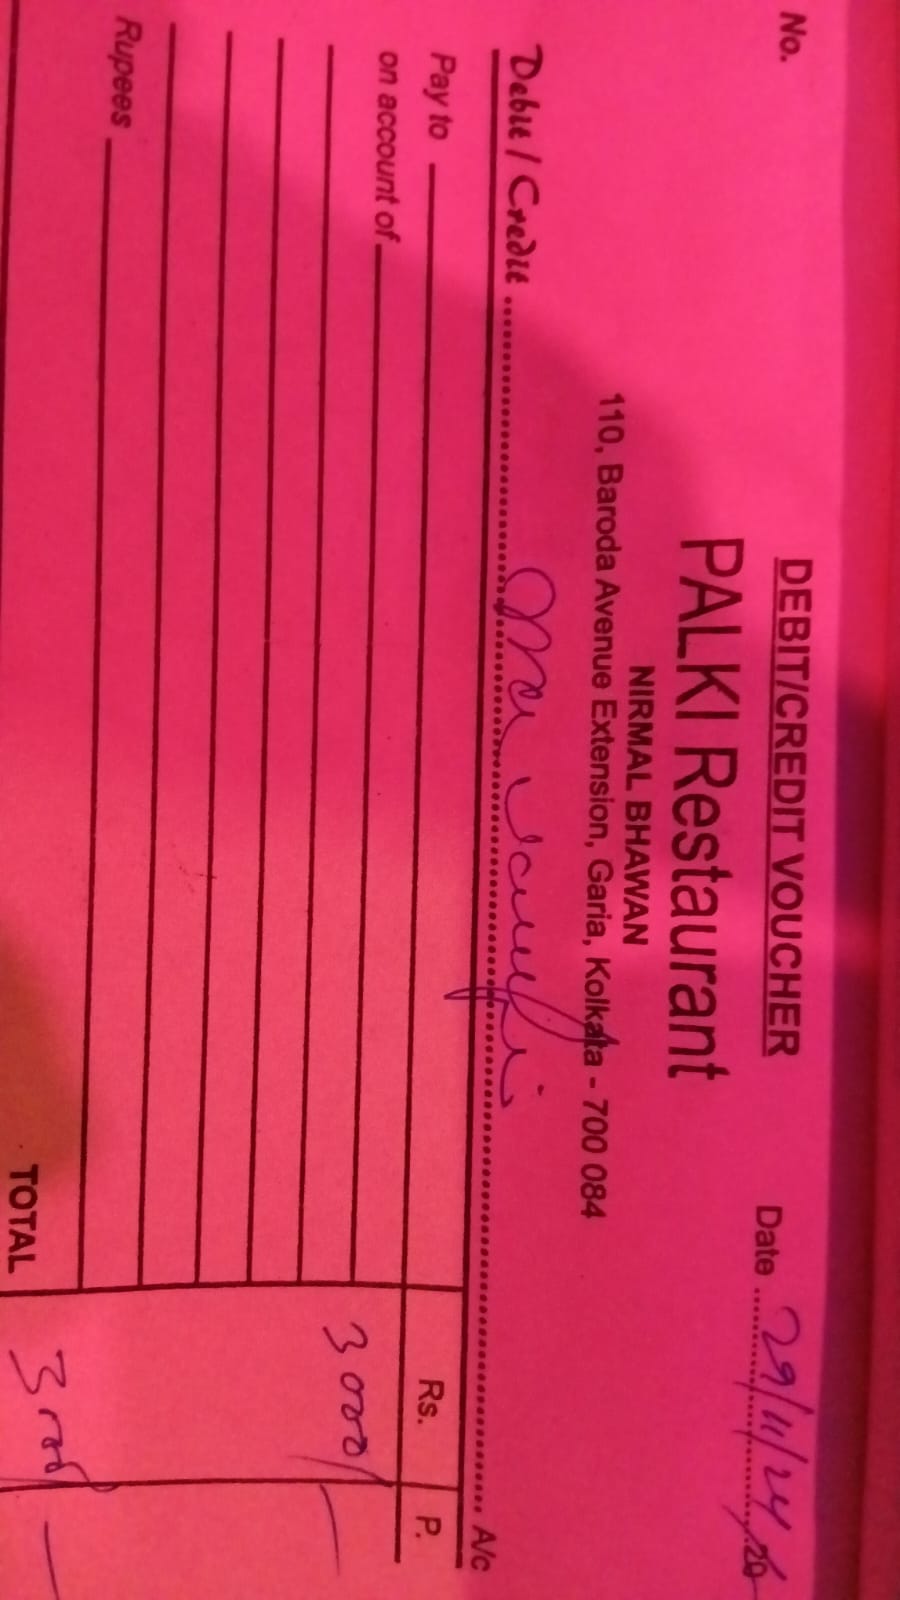 DEBIT/CREDIT VOUCHER
No.
Date 29/11/24 20
PALKI Restaurant
NIRMAL BHAWAN
110, Baroda Avenue Extension, Garia, Kolkata - 700 084
Debit / Credit A/c
Pay to Rs. P.
on account of 3000/-
Rupees
TOTAL 3000/-